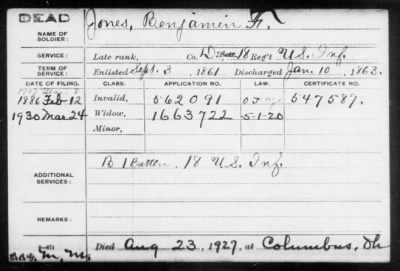 DEAD
NAME OF SOLDIER: Jones, Benjamin F.
SERVICE: Late rank, Co. D, 18 Reg't U.S. Inf.
TERM OF SERVICE: Enlisted Sept. 3, 1861. Discharged Jan. 10, 1863.
DATE OF FILING. CLASS. APPLICATION NO. LAW. CERTIFICATE NO.
1886 Feb 12 Invalid, 562091 547587.
1930 Mar 24 Widow, 1663722 5-1-20
Minor,
ADDITIONAL SERVICES: B 1 Batt. 18 U.S. Inf.
REMARKS:
Died Aug 23, 1927, at Columbus, Oh